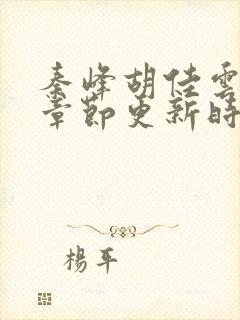 秦峰胡佳雲
章節更新時
楊平